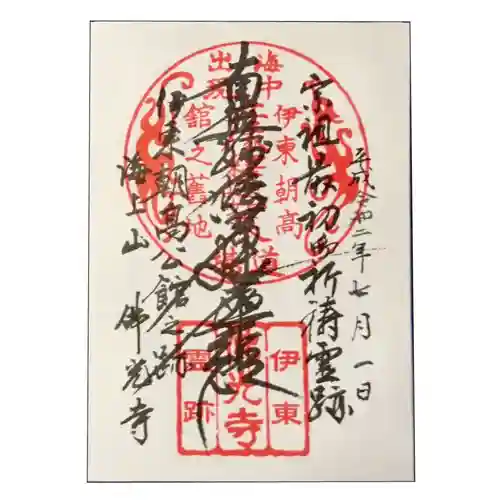 平成令和二年七月一日
宗祖最初御祈祷霊跡
南無妙法蓮華経
伊東朝高公館之跡
海上山 佛光寺
海中
出現
伊東朝高
舘之舊地
道
伊東
佛光寺
霊跡